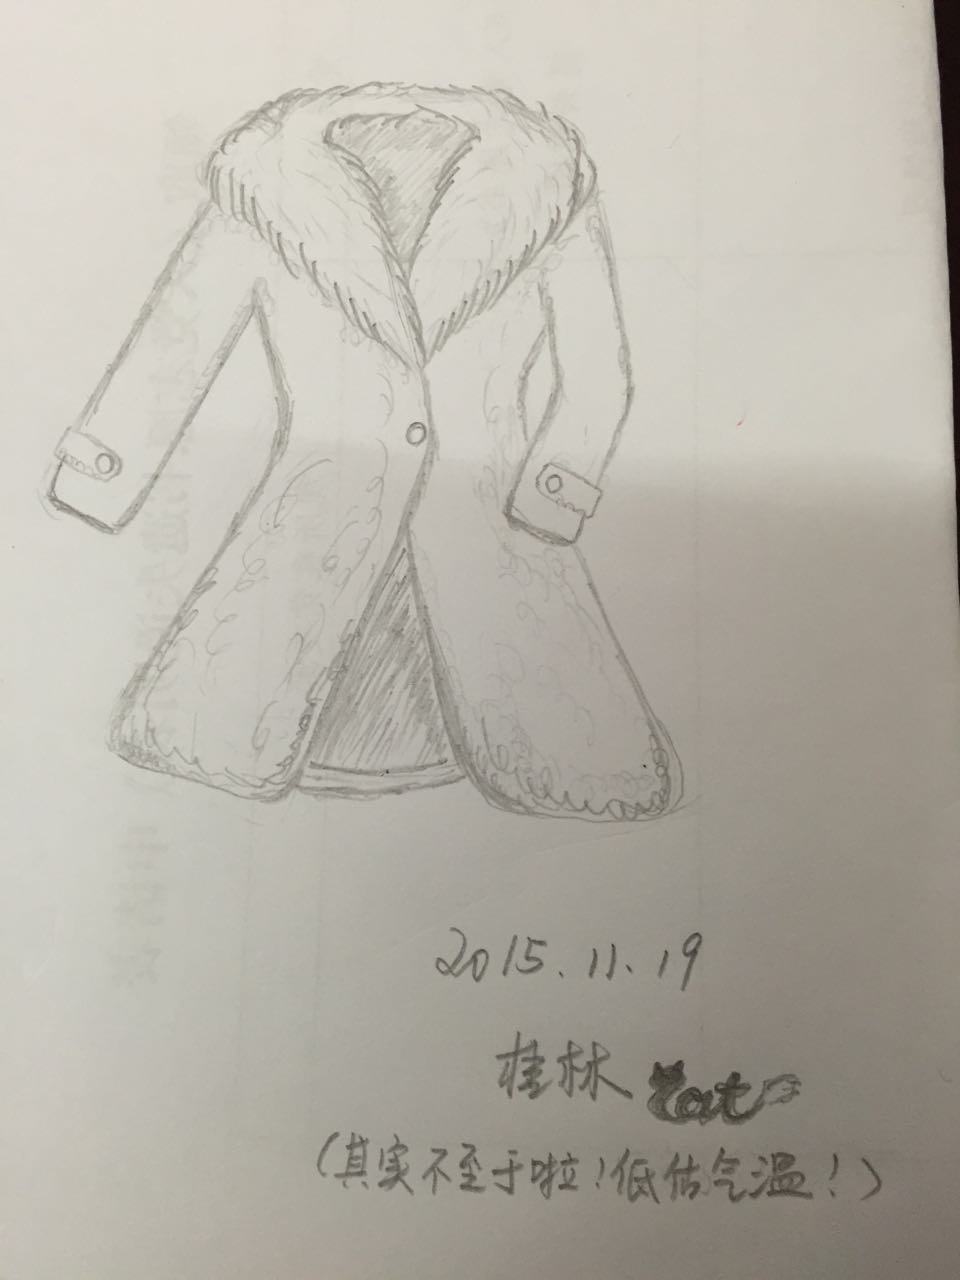 2015.11.19
桂林 Cat
(其实不至于啦！低估气温！)